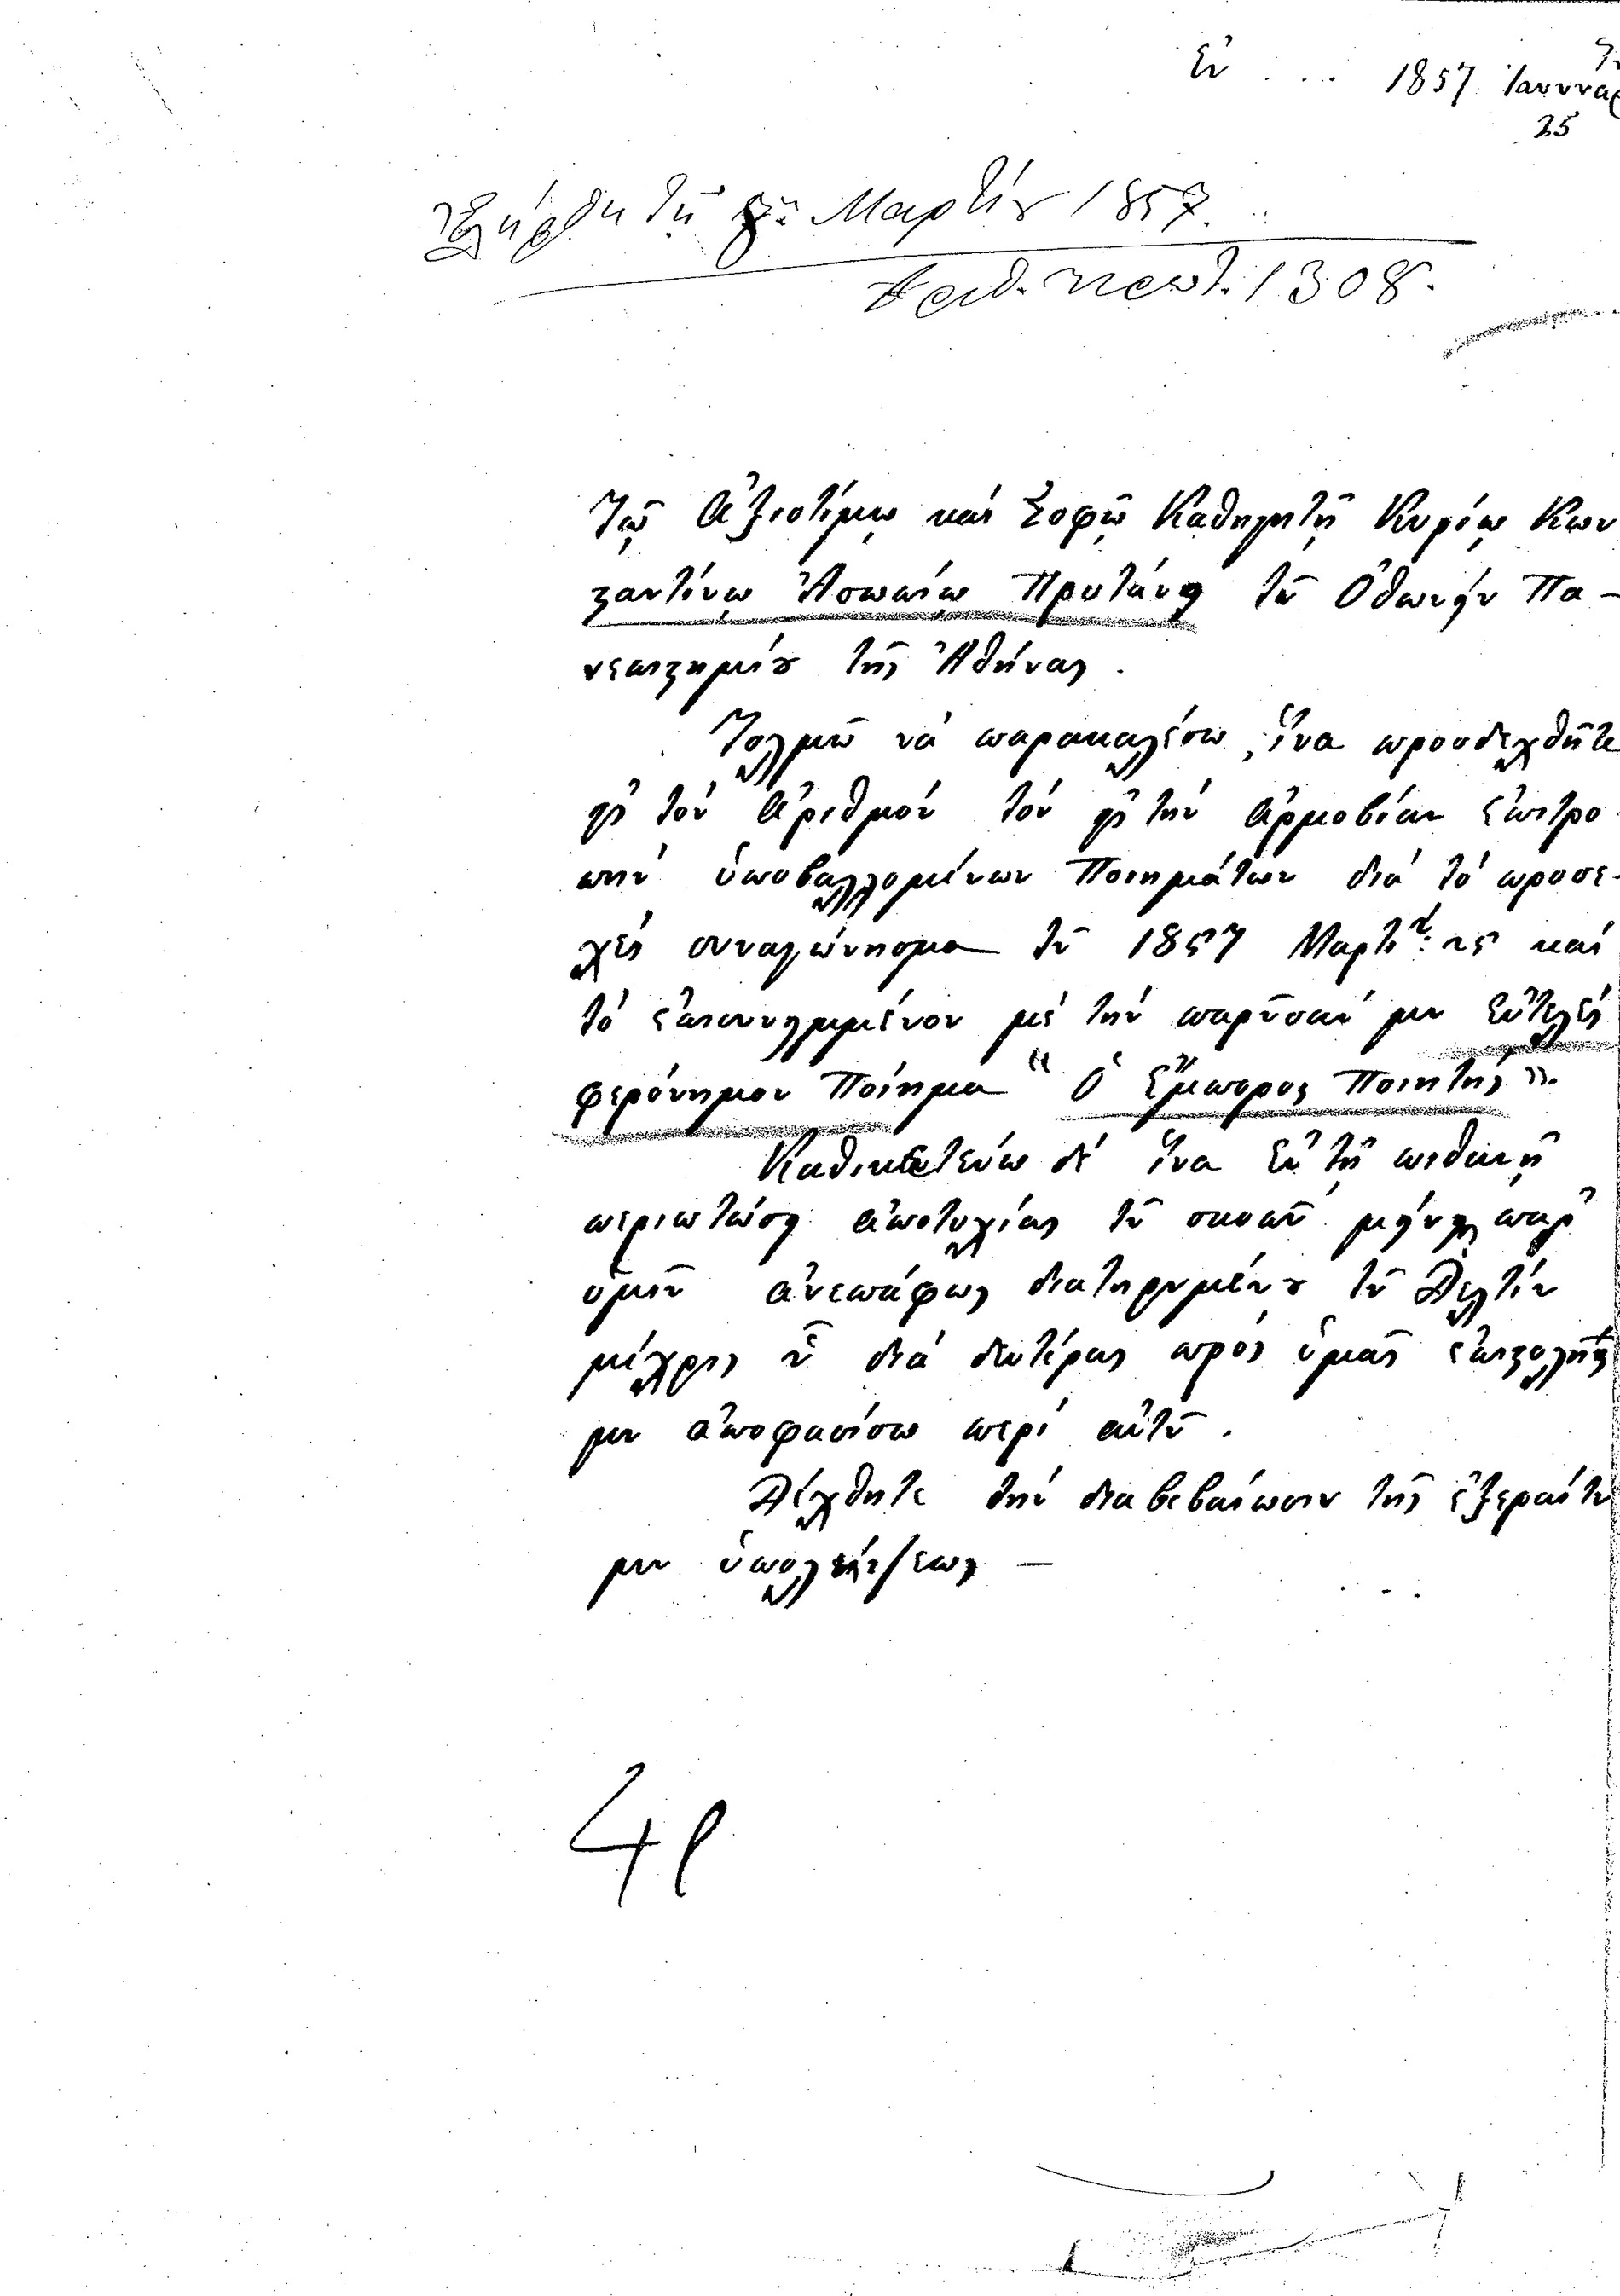 Ἐν ... 1857 Ἰαννουαρ
25
Ἐλήφθη τῇ Μαρτίου 1857
Ἀριθ. πρωτ. 1308.
Τῷ Ἀξιοτίμῳ καὶ Σοφῷ Καθηγητῇ Κυρίῳ Κων
σταντίνῳ Ἀσωπίῳ Πρυτάνει τοῦ Ὀθωνείου Πα-
νεπιστημίου τῆς Ἀθήνας.
Τολμῶ νὰ παρακαλέσω, ἵνα προσδεχθῆτε
εἰς τὸν ἀριθμὸν τῶν εἰς τὴν ἁρμοδίαν ἐπιτρο
πὴν ὑποβαλλομένων Ποιημάτων διὰ τὸ προσε-
χὲς συναγώνισμα τοῦ 1857 Μαρτίου: 25 καὶ
τὸ ἐπισυνημμένον μὲ τὴν παροῦσάν μου εὐτελὲς
φερώνυμον Ποίημα "Ὁ Ἔμπορος Ποιητής".
Καθικετεύω δὲ ἵνα ἐν τῇ πιθανῇ
περιπτώσει ἀποτυχίας τοῦ σκοποῦ μείνῃ παρ'
ὑμῖν ἀνεπάφως διατηρημένου τοῦ Δελτίου
μέχρις οὗ διὰ δευτέρας πρὸς ὑμᾶς ἐπιστολῆς
μου ἀποφασίσω περὶ αὐτοῦ.
Δέχθητε τὴν διαβεβαίωσιν τῆς ἐξεραίτου
μου ὑπολήψεως —